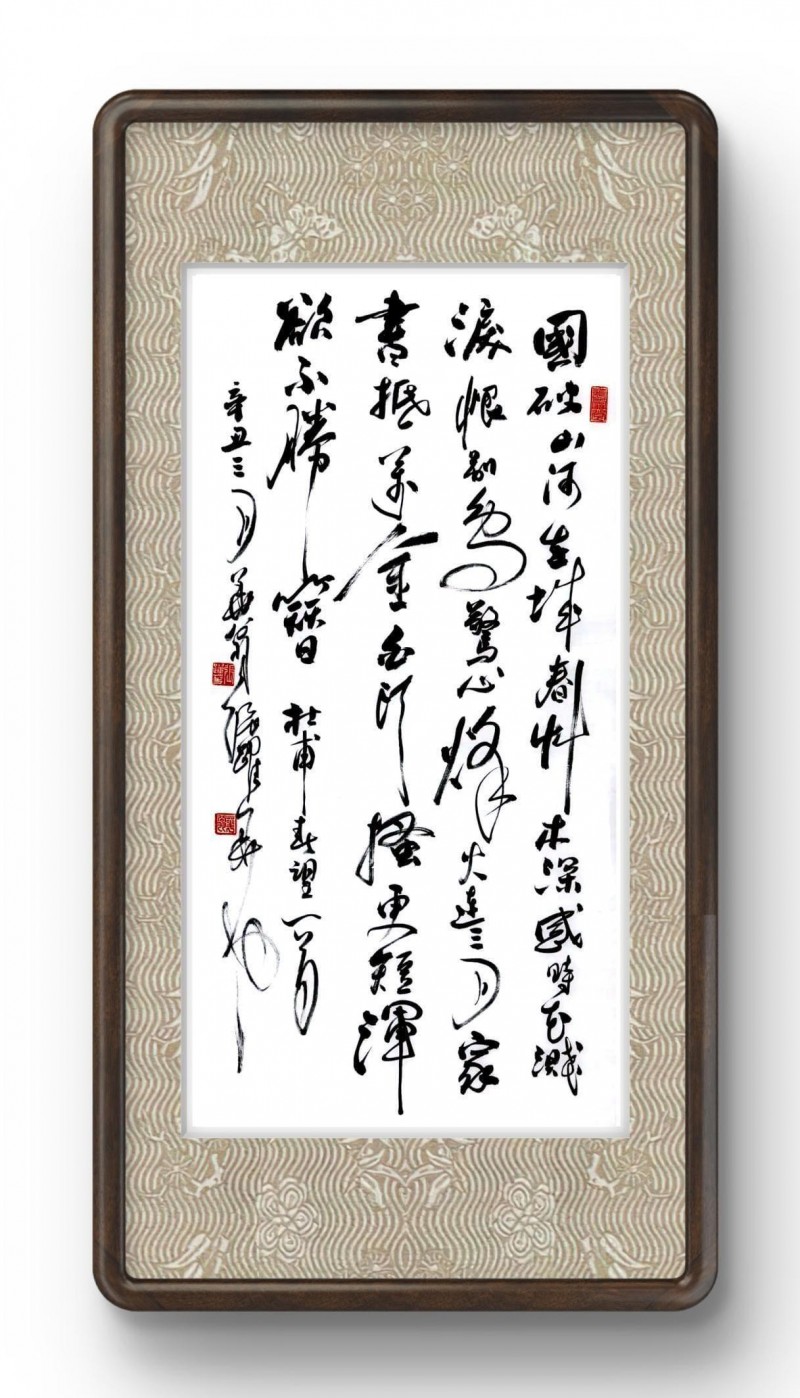 國破山河在城春草木深感時花濺
淚恨別鳥驚心烽火連三月家
書抵萬金白頭搔更短渾
欲不勝簪 杜甫春望一首
辛丑三月